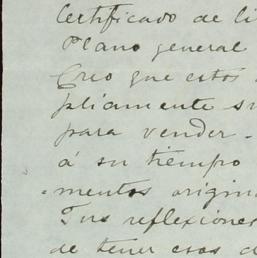 Certificado de li
Plano general
Creo que estos
pliamente su
para vender.
á su tiempo
mentos origin
Tus reflexiones
de tener esas d